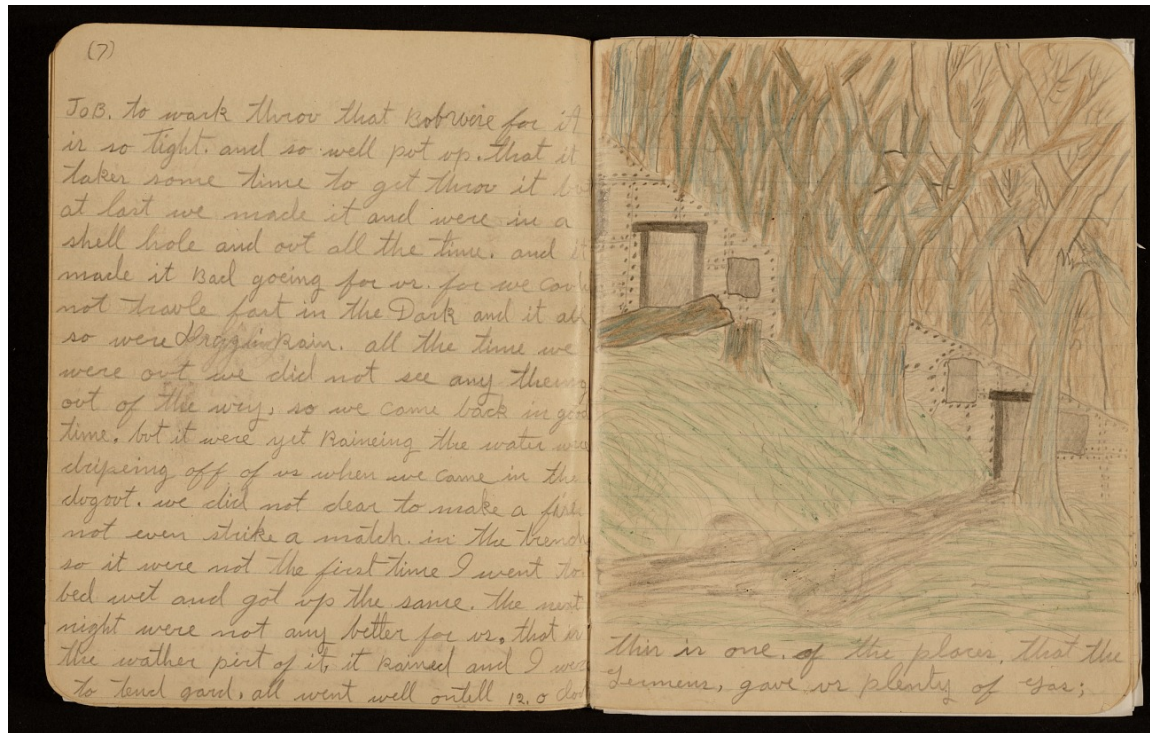 (7)
JoB. to wark throv that Bobwire for it
is so tight. and so well pot vp. that it
takes some time to get throv it
at last we made it and were in a
shell hole and ovt all the time. and it
made it Bad goeing for vs. for we
not travle fast in the Dark and it
so were Drizin Rain. all the time we
were ovt we did not see any theing
ovt of the wey, so we came back in
time. but it were yet Raineing the water
dripeing off of vs when we came in the
dogovt. we did not dear to make a fire
not even strike a match. in the trench
so it were not the first time I went to
bed wet and got vp the same. the next
night were not any better for vs. that is
the wather pirt of it it Rained and I
to tend gard. all went well ontell 12.0
this is one. of the places, that the
Germens, gave vs plenty of gas;